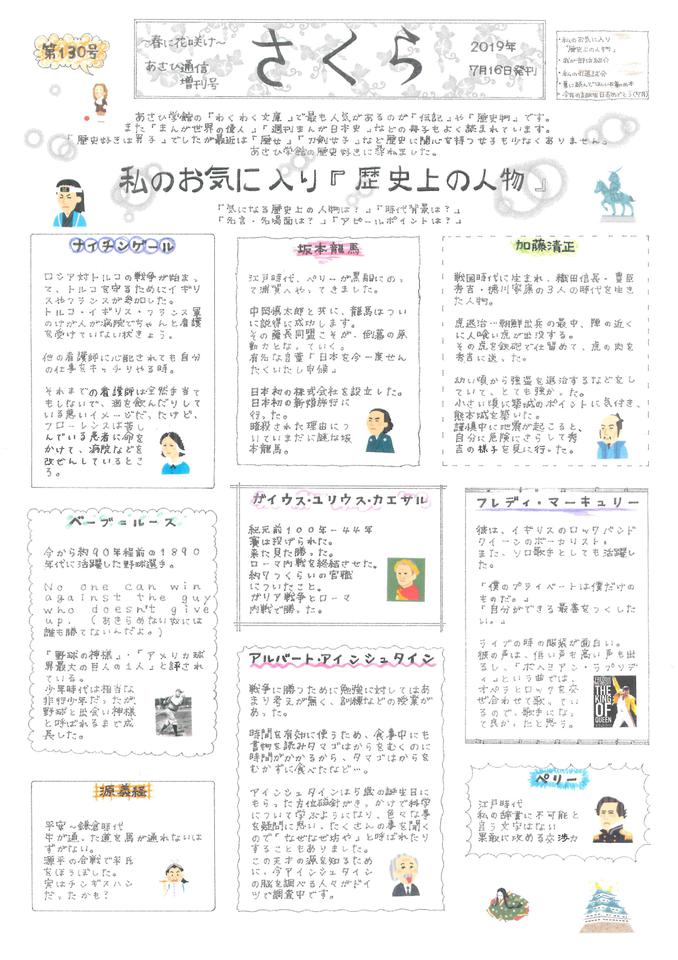 第130号
～春に花咲け～
あさひ通信
増刊号
さくら
2019年
7月16日発刊
・私のお気に入り
『歴史上の人物』
あさひ学館の『わくわく文庫』で最も人気があるのが『伝記』や『歴史物』です。
また『まんが世界の偉人』『週刊まんが日本史』などの冊子もよく読まれています。
『歴史好きは男子』でしたが最近は『歴女』『刀剣女子』など歴史に関心を持つ女子も少なくありません。
あさひ学館の歴史好きに尋ねました。
私のお気に入り『歴史上の人物』
『気になる歴史上の人物は？』『時代背景は？』
『名言・名場面は？』『アピールポイントは？』
ナイチンゲール
ロシア対トルコの戦争が始まっ
て、トルコを守るためにイギリ
スやフランスが参加した。
トルコ・イギリス・フランス軍
のけが人が病院でちゃんと看護
を受けていない状きょう。
他の看護師に心配されても自分
の仕事をキッチリやる所。
それまでの看護師は全然手当て
もしないで、酒を飲んだりして
いる悪いイメージだ、たけど、
フローレンスは苦し
んでいる患者に命を
かけて、病院などを
改ぜんしているとこ
ろ。
坂本龍馬
江戸時代、ペリーが黒船にのっ
て浦賀へやってきました。
中岡慎太郎と共に、龍馬はつい
に説得に成功します。
その薩長同盟こそが、倒幕の原
動力となっていく。
有名な言葉「日本を今一度せん
たくいたし申候」
日本初の株式会社を設立した。
日本初の新婚旅行に
行った。
暗殺された理由につ
いていまだに謎は坂
本龍馬。
加藤清正
戦国時代に生まれ、織田信長・豊臣
秀吉・徳川家康の３人の時代を生き
た人物。
虎退治…朝鮮出兵の最中、陣の近く
に人喰い虎が出没する。
その虎を鉄砲で仕留めて、虎の肉を
秀吉に送った。
幼い頃から強盗を退治するなどをし
ていて、とても強かった。
小さい頃に築城のポイントに気付き、
熊本城を築いた。
謹慎中に地震が起こると、
自分に危険にさらして秀
吉の様子を見に行った。
ベーブ＝ルース
今から約９０年程前の１８９０
年代に活躍した野球選手。
No one can win
against the guy
who doesn't give
up. （あきらめない奴には
誰も勝てないんだよ。）
「野球の神様」・「アメリカ球
界最大の巨人の１人」と評され
ている。
少年時代は相当な
非行少年だったが、
野球と出会い神様
と呼ばれるまで成
長した。
ガイウス・ユリウス・カエサル
紀元前１００年～４４年
賽は投げられた。
来た見た勝った。
ローマ内戦を終結させた。
約９つくらいの官職
についたこと。
ガリア戦争とローマ
内戦で勝った。
フレディ・マーキュリー
彼は、イギリスのロックバンド
クイーンのボーカリスト。
また、ソロ歌手としても活躍し
た。
「僕のプライベートは僕だけのも
のだ。」
「自分ができる最善をつくした
い。」
ライブの時の服装が面白い。
彼の声は、低い声も高い声も出
るし、「ボヘミアン・ラプソディ
」という曲では、
オペラとロックを交
ぜ合わせて歌ってい
るので、歌手になっ
て良かったと思う。
THE
KING
OF
QUEEN
アルバート・アインシュタイン
戦争に勝つために勉強に対してはあ
まり考えが無く、訓練などの授業が
あった。
時間を有効に使うため、食事中にも
書物を読みタマゴはからをむくのに
時間がかかるから、タマゴはからを
むかずに食べたなど…。
アインシュタインは５歳の誕生日に
もらった方位磁針がきっかけで科学
について学ぶようになり、色々な事
を疑問に思い、たくさんの事を聞く
ので「なぜなぜ坊や」と呼ばれたり
することもありました。
この天才の源を知るため
に、今アインシュタイン
の脳を調べる人々がドイ
ツで調査中です。
源義経
平安～鎌倉時代
牛が通った道を馬が通れないは
ずがない。
源平の合戦で平氏
をほろぼした。
実はチンギスハン
だったかも？
ペリー
江戸時代
私の辞書に不可能と
言う文字はない
果敢に攻める交渉力